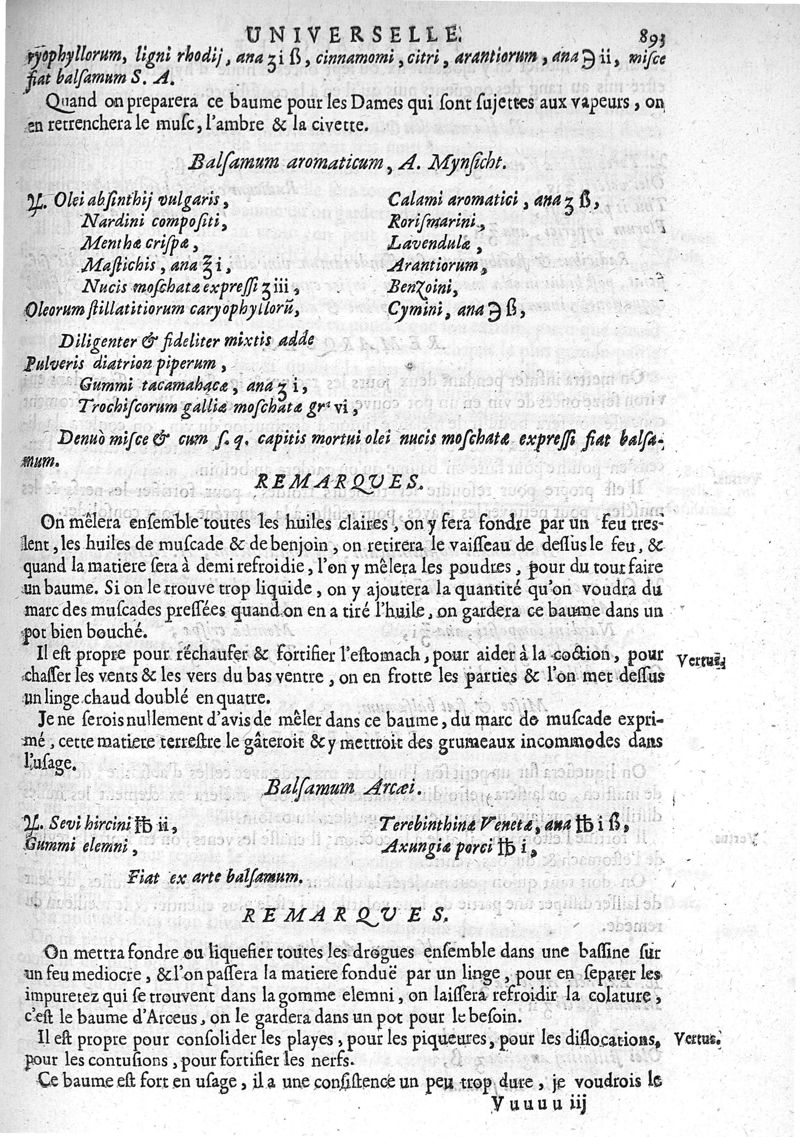 UNIVERSELLE. 893
ryophyllorum, ligni rhodij, ana ʒ i ß, cinnamomi, citri, arantiorum, ana ℈ ii, misce
fiat balsamum S. A.
Quand on preparera ce baume pour les Dames qui sont sujettes aux vapeurs, on
en retrenchera le musc, l'ambre & la civette.
Balsamum aromaticum, A. Mynsicht.
♃. Olei absinthij vulgaris,
Nardini compositi,
Menthæ crispæ,
Mastichis, ana ℥ i,
Nucis moschatæ expressi ʒ iii,
Oleorum stillatitiorum caryophyllorũ,
Calami aromatici, ana ʒ ß,
Rorismarini,
Lavendulæ,
Arantiorum,
Benzoini,
Cymini, ana ℈ ß,
Diligenter & fideliter mixtis adde
Pulveris diatrion piperum,
Gummi tacamahacæ, ana ʒ i,
Trochiscorum galliæ moschatæ gr. vi,
Denuò misce & cum s. q. capitis mortui olei nucis moschatæ expressi fiat balsa-
mum.
REMARQUES.
On mêlera ensemble toutes les huiles claires, on y fera fondre par un feu tres-
lent, les huiles de muscade & de benjoin, on retirera le vaisseau de dessus le feu, &
quand la matiere sera à demi refroidie, l'on y mêlera les poudres, pour du tout faire
un baume. Si on le trouve trop liquide, on y ajoutera la quantité qu'on voudra du
marc des muscades pressées quand on en a tiré l'huile, on gardera ce baume dans un
pot bien bouché.
Il est propre pour réchaufer & fortifier l'estomach, pour aider à la coction, pour
chasser les vents & les vers du bas ventre, on en frotte les parties & l'on met dessus
un linge chaud doublé en quatre.
Vertus.
Je ne serois nullement d'avis de mêler dans ce baume, du marc de muscade expri-
mé, cette matiere terrestre le gâteroit & y mettroit des grumeaux incommodes dans
l'usage.
Balsamum Arcæi.
♃. Sevi hircini ℔ ii,
Gummi elemni,
Terebinthinæ Venetæ, ana ℔ i ß,
Axungiæ porci ℔ i,
Fiat ex arte balsamum.
REMARQUES.
On mettra fondre ou liquefier toutes les drogues ensemble dans une bassine sur
un feu mediocre, & l'on passera la matiere fonduë par un linge, pour en separer les
impuretez qui se trouvent dans la gomme elemni, on laissera refroidir la colature,
c'est le baume d'Arceus, on le gardera dans un pot pour le besoin.
Il est propre pour consolider les playes, pour les piqueures, pour les dislocations,
pour les contusions, pour fortifier les nerfs.
Vertus.
Ce baume est fort en usage, il a une consistence un peu trop dure, je voudrois le
Vuuuu iij